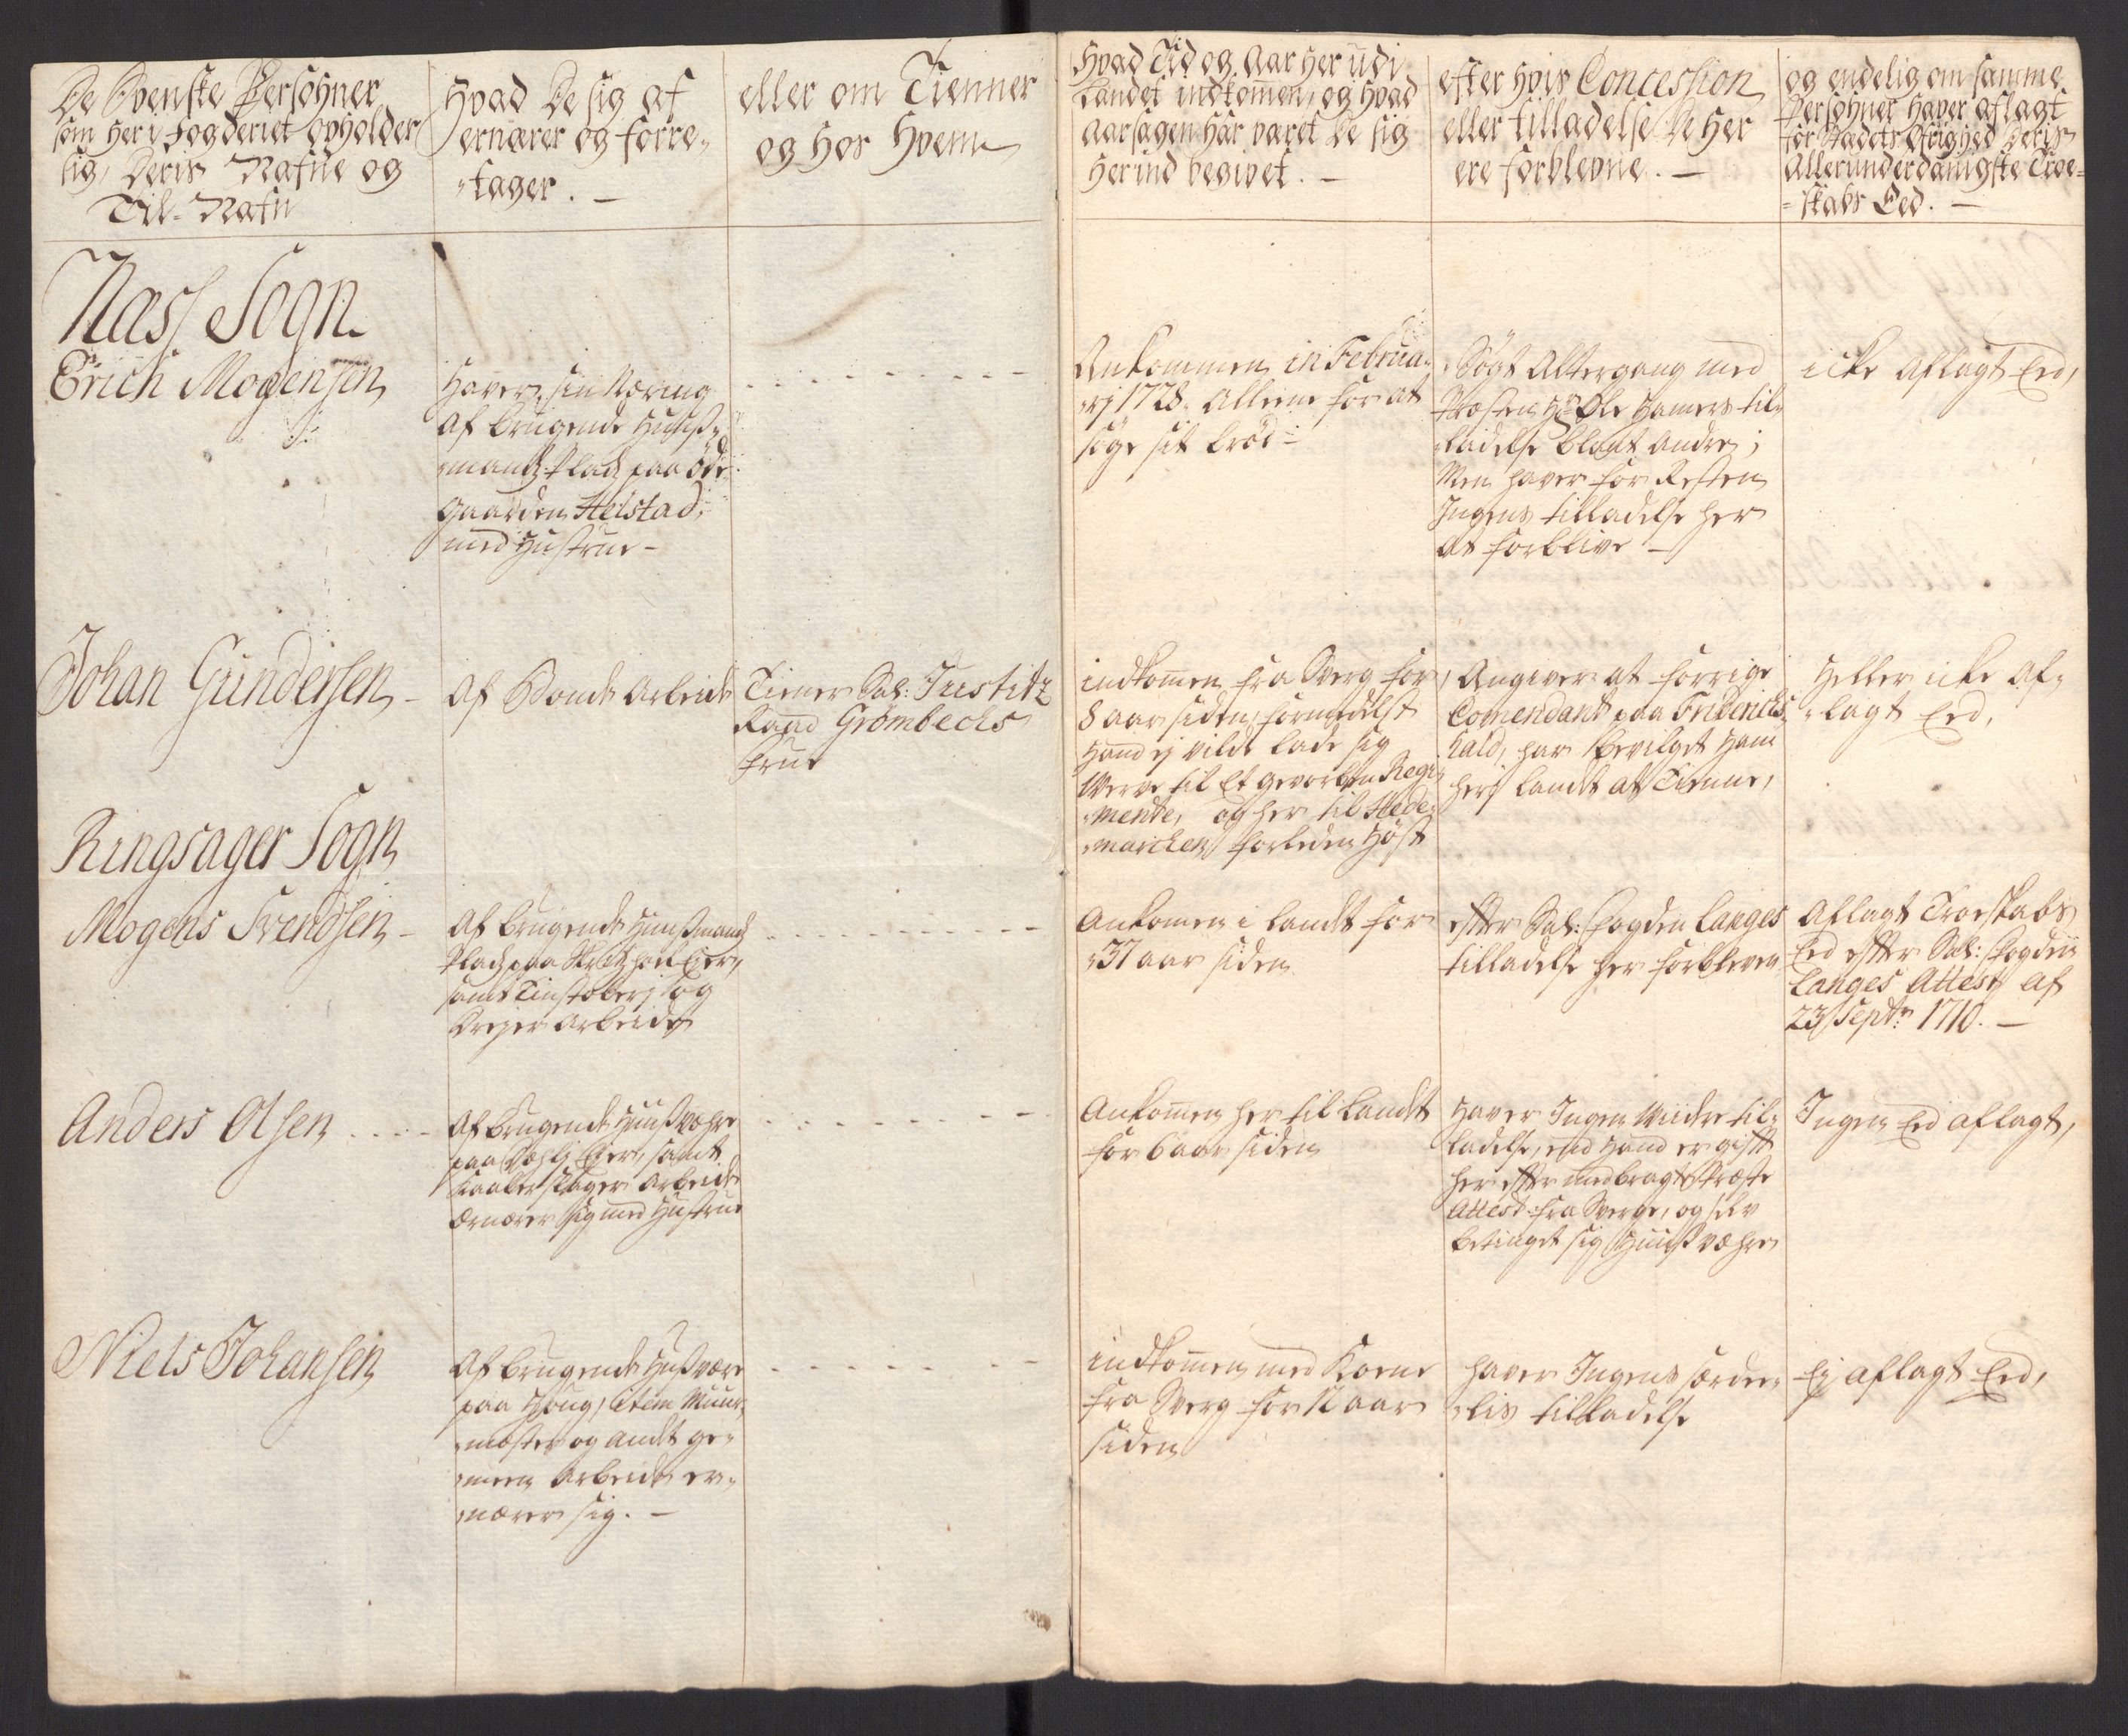 De Svenske Persohner
som her i Fogderiet opholder
sig, Deris Nafne og
Til-Nafn
Hvad De sig af
ernærer og forre„
„tager. —
eller om Tienner
og hos Hvem
Hvad Tid og Aar her udi
Landet indkomen, og hvad
Aarsagen har været De sig
herind begivet. —
efter hvis Concession
eller tilladelse De her
ere forblevne. —
og endelig om samme
Persohner haver aflagt
for Stadets Øfrighed Deris
Allerunderdanigste Troe-
-skabs Eed. —
Næss Sogn
Erich Mogensen
Haver sin Næring
af brugende Huuß„
„mandz Pladz paa Øde
Gaarden Helstad,
med Hustrue —
Ankommen in Februa„
„rj 1728. Alleene for at
søge sit brød —
Søgt Altergang med
Præsten Hr Ole Hamers til„
„ladelse blant andre;
Men haver for Resten
Ingens tilladelse her
at forblive —
icke aflagt Eed,
Johan Gundersen —
Af Bonde Arbeide
Tiener Sal: Justitz
Raad Grømbechs
Frue
indkommen fra Sverg for
8 aar siden, formedelst
Hand ej vilde lade sig
Verve til Et Gevorben Regi„
„mente, og her til Hede„
„marcken forleden Høst
Angiver at forrige
Comendant paa Friderichs„
hald, har bevilget Ham
her i Landet at Tienne,
Heller icke af„
„lagt Eed,
Ringsager Sogn
Mogens Svendsen —
Af brugende Huusmandz
Pladz paa Eier,
samt Tinstøberj og
Dreyer Arbeide
Ankomen i Landet for
37 aar siden
efter Sal: Fogden Langes
tilladelse her forbleven
Aflagt Troeskabs
Eed efter Sal: Fogden
Langes Attest af
23 Septr 1710. —
Anders Olsen
Af brugende Huusvære
paa Eier, samt
Kaaberslager Arbeide
Ernærer sig med Hustrue
Ankommen her til Landet
for 6 aar siden
Haver Ingen Viidre til„
ladelse, end Hand er gift
her efter medbragte Præste
Attest fra Sverge, og selv
betinget sig Huusværre
Ingen Eed aflagt,
Niels Johansen
Af brugende Husvære
paa Houg, item Muur„
„mester og andet ge„
„meen Arbeide er„
„nærer sig. —
indkommen med Kone
fra Sverg for 12 aar
siden
haver Ingens serdee„
„lis tilladelse
Ej aflagt Eed,